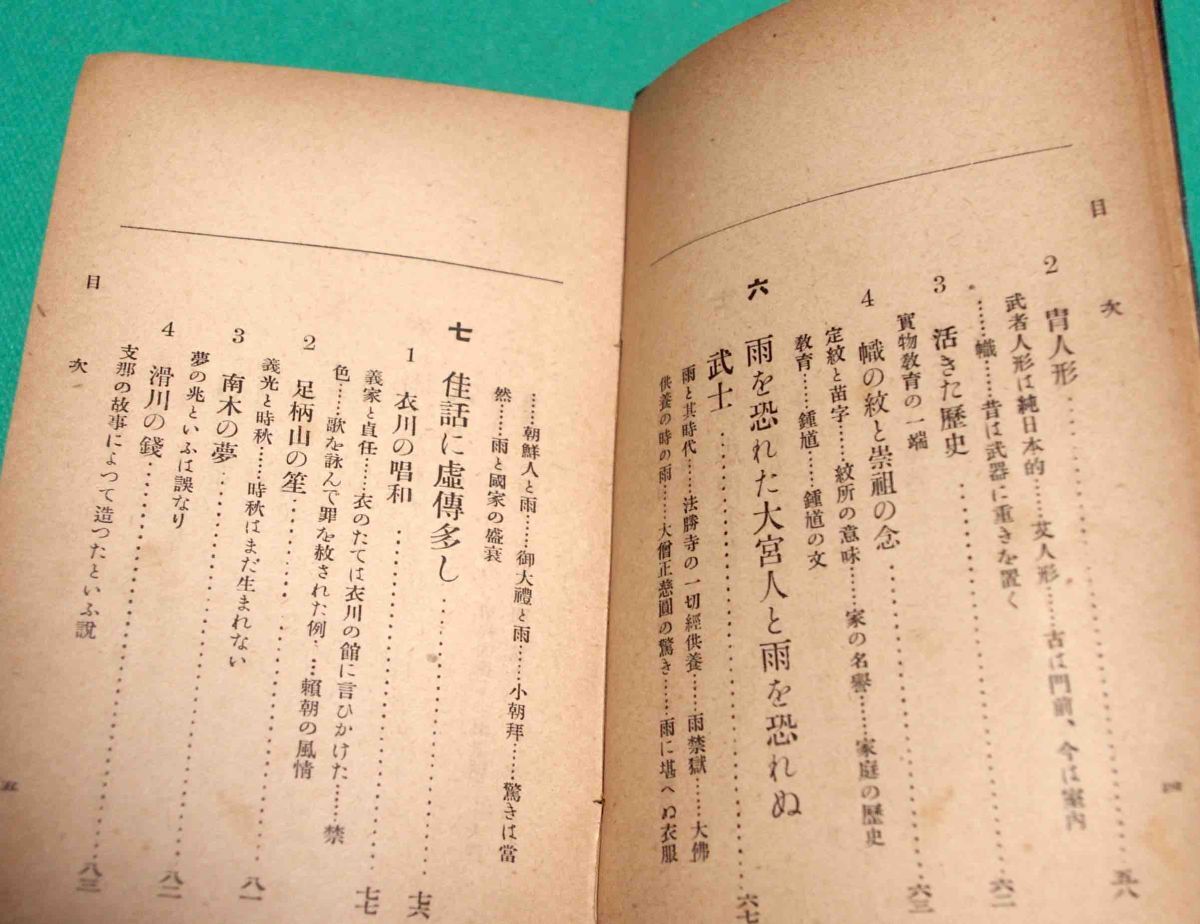 目次
2 冑人形……五八
武者人形は純日本的……艾人形……古は門前、今は室內
……幟……昔は武器に重きを置く
3 活きた歷史……六二
實物敎育の一端
4 幟の紋と崇祖の念……六三
定紋と苗字……紋所の意味……家の名譽……家庭の歷史
敎育……鍾馗……鍾馗の文
六 雨を恐れた大宮人と雨を恐れぬ
武士……六七
雨と其時代……法勝寺の一切經供養……雨禁獄……大佛
供養の時の雨……大僧正慈圓の驚き……雨に堪へぬ衣服
四
……朝鮮人と雨……御大禮と雨……小朝拜……驚きは當
然……雨と國家の盛衰
七 佳話に虛傳多し……七六
1 衣川の唱和……七七
義家と貞任……衣のたては衣川の館に言ひかけた……禁
色……歌を詠んで罪を赦された例……賴朝の風情
2 足柄山の笙……八一
義光と時秋……時秋はまだ生まれない
3 南木の夢……八二
夢の兆といふは誤なり
4 滑川の錢……八三
支那の故事によつて造つたといふ說
目次
五